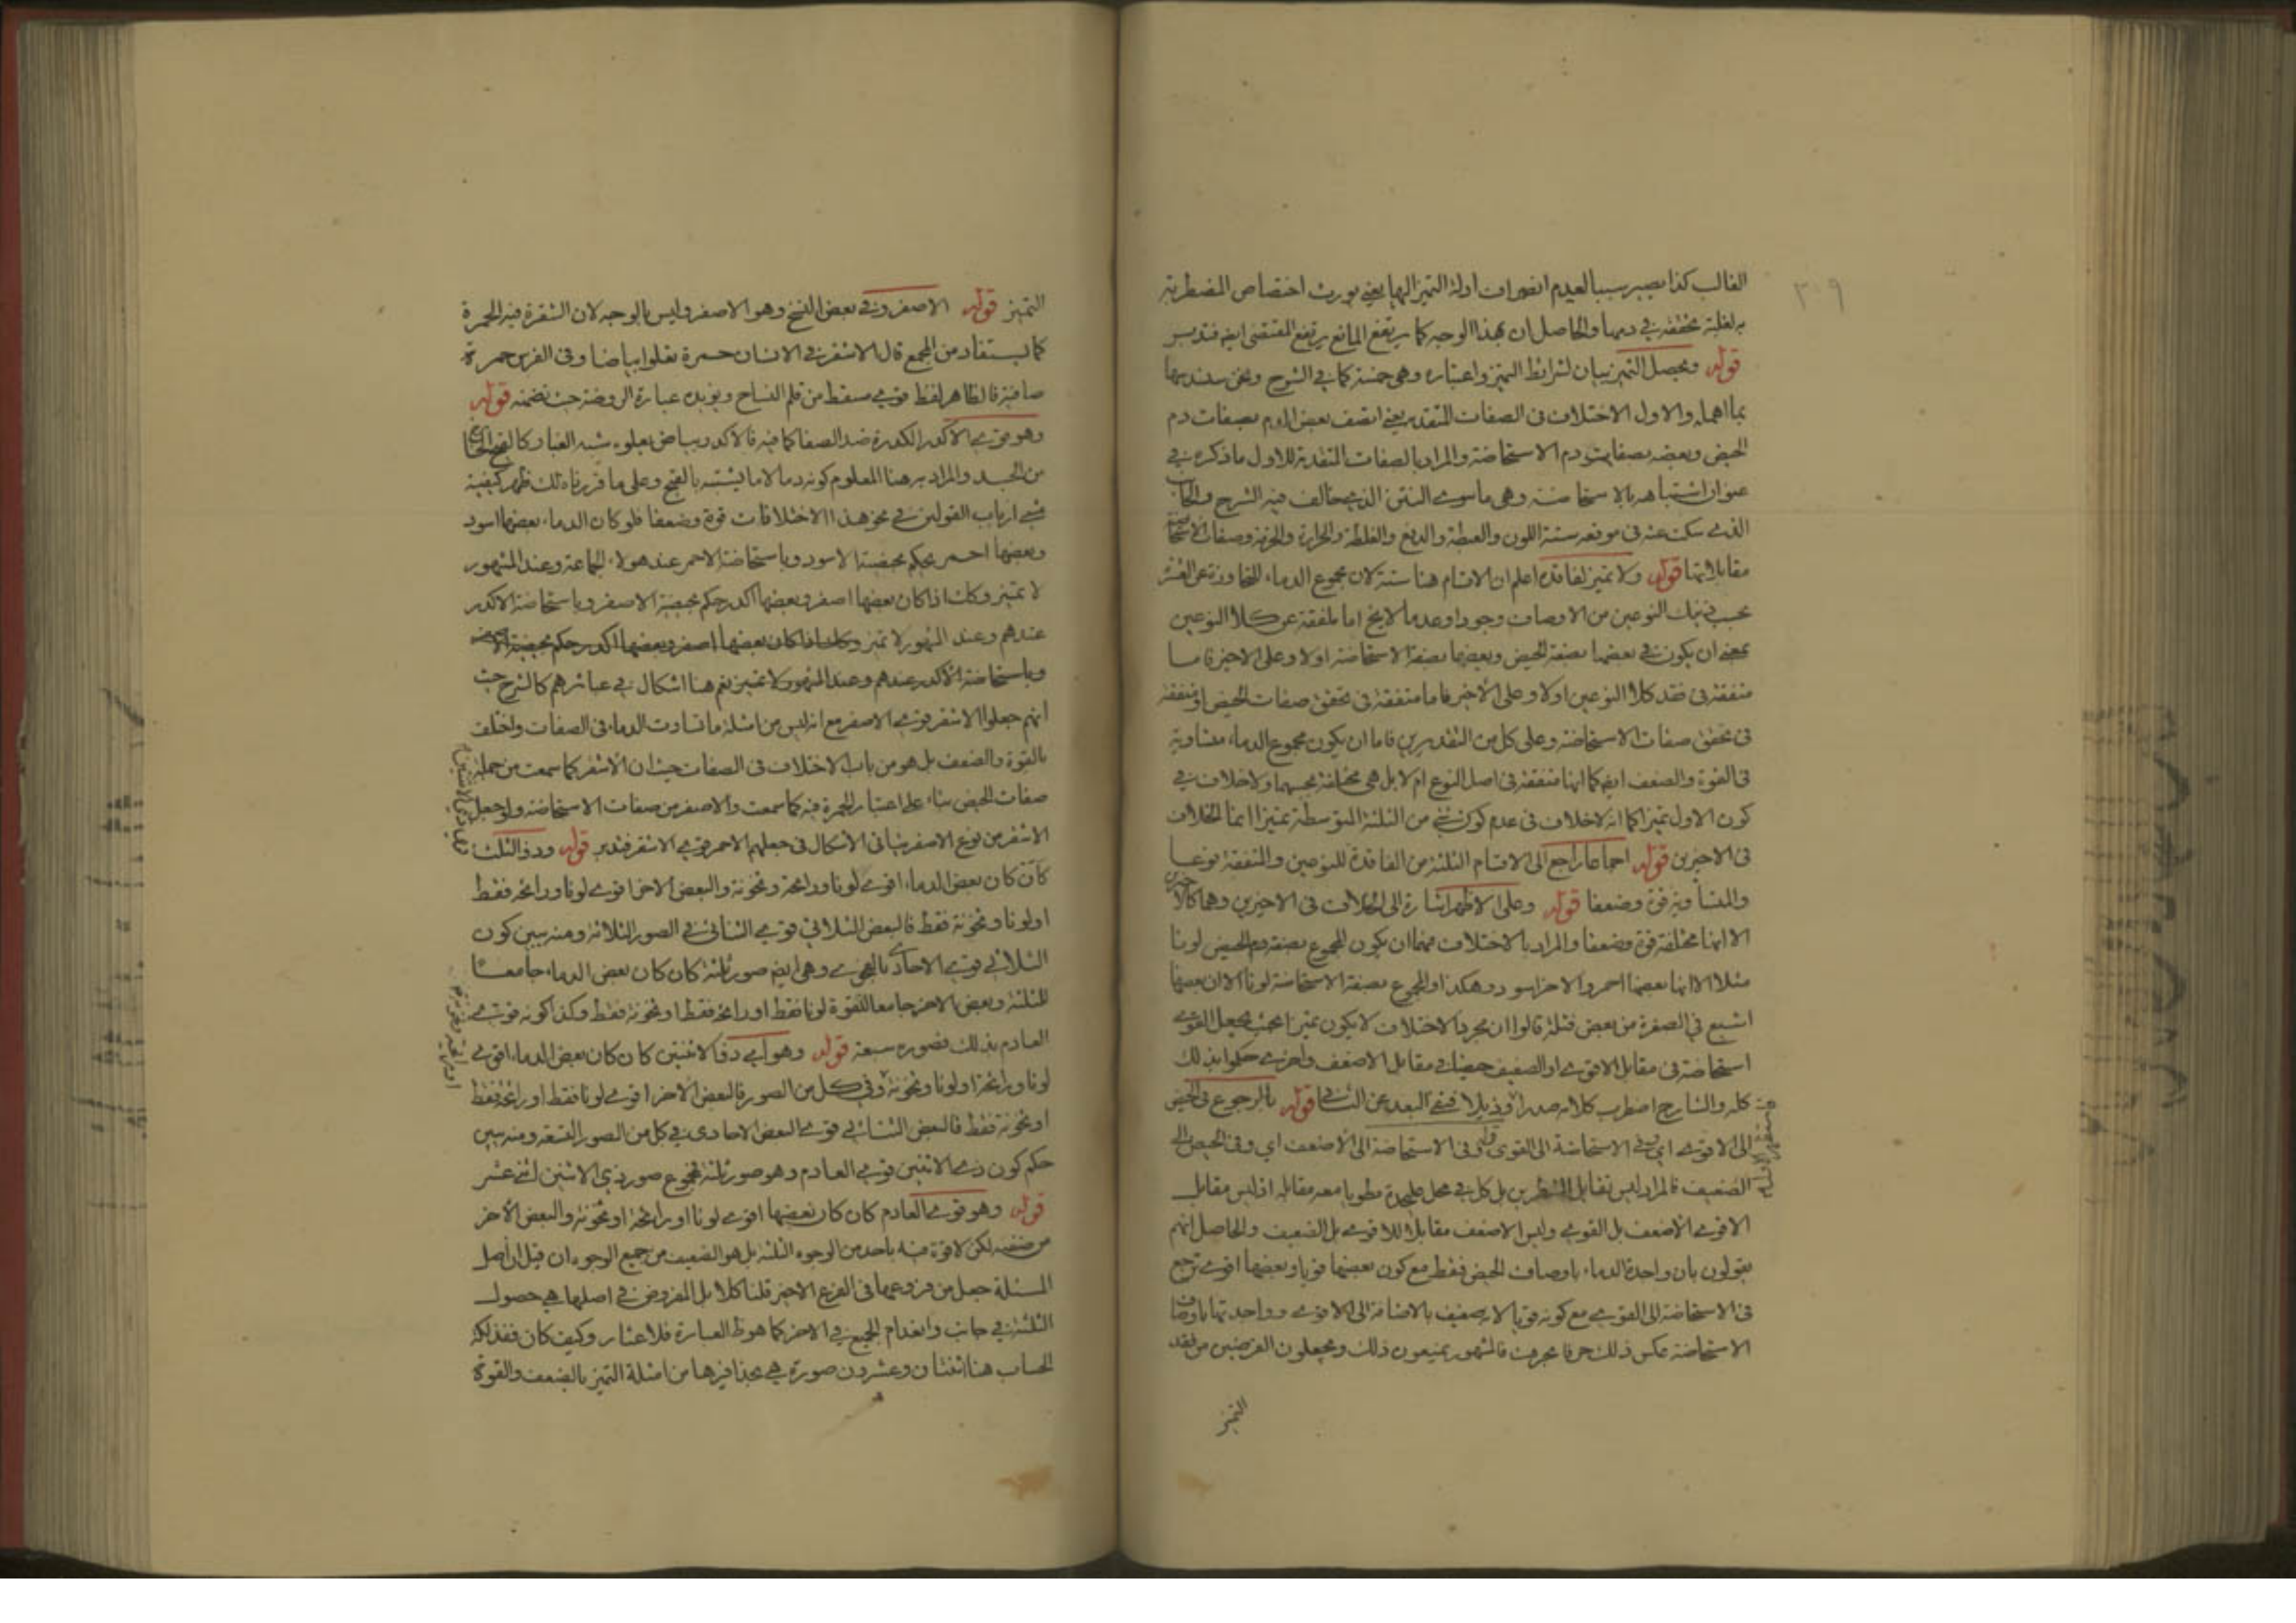 ٢٠٩
الغالب كذا يصير سببا لعدم انصراف ادلة التميز اليها يعني يورث اختصاص المضطربة
بغلبة تحققه في دمها والحاصل ان بهذا الوجه كما يرتفع المانع يرتفع المقتضى ايضا فتدبر
قوله ويحصل التميز بيان لشرائط التميز واعتباره وهي خمسة كما في الشرح ونحن سندرسها
بما اهمله والاول الاختلاف فى الصفات المتقدمة يعني اتصف بعض الدم بصفات دم
الحيض وبعضه بصفات دم الاستحاضة والمراد بالصفات المتقدمة للاول ما ذكره في
عنوان اشتباهه بالاستحاضة وهى ما سوى النتن الذي خالف فيه الشرح والكتاب
الذي سكت عنه فى موقعه ستة اللون والعبطة والدفع والغلظة والحرارة والحرقة وصفات الاستحاضة
مقابلاتها قوله ولا تميز لفاقده اعلم ان الاقسام هنا ستة لان مجموع الدماء المتجاوزة عن العشرة
بحسب ذينك النوعين من الاوصاف وجودا وعدما لا يخ اما ملفقة عن كلا النوعين
بمعنى ان يكون في بعضها بصفة الحيض وبعضها بصفة الاستحاضة اولا وعلى الاخير فاما
متفقة فى فقد كلا النوعين اولا وعلى الاخير فاما متفقة فى تحقق صفات الحيض او متفقة
فى تحقق صفات الاستحاضة وعلى كل من التقديرين فاما ان يكون مجموع الدماء متساوية
فى القوة والضعف ايضا كما انها متفقة فى اصل النوع ام لا بل هى مختلفة بحسبهما ولا خلاف في
كون الاول تميزا كما انه لا خلاف فى عدم كون شئ من الثلثة المتوسطة تميزا انما الخلاف
فى الاخيرين قوله اجماعا راجع الى الاقسام الثلثة من الفاقدة للنوعين والمتفقة نوعا
والمتساوية قوة وضعفا قوله وعلى الاظهر اشارة الى الخلاف فى الاخيرين وهما كالاخيرين
الا انها مختلفة قوة وضعفا والمراد بالاختلاف فيهما ان يكون المجموع بصفة دم الحيض لونا
مثلا الا انها بعضها احمر والاخر اسود وهكذا او المجموع بصفة الاستحاضة لونا الا ان بعضها
اشبع في الصفرة من بعض فتلة قالوا ان مجرد الاختلاف لا يكون تميزا بحيث يجعل القوي
استحاضة فى مقابل الاقوى او الضعيف حيضا في مقابل الاضعف واخرى حكموا بذلك
كله والشارح اضطرب كلامه صدرا وذيلا قوله بالرجوع فى الحيض
الى الاقوى اي وفي الاستحاضة الى القوى قوله وفى الاستحاضة الى الاضعف اي وفى الحيض الى
الضعيف فالمراد ليس تقابل الشطرين بل كل في محل عليحدة مطويا معه مقابله اذ ليس مقابل
الاقوى الاضعف بل القوي وليس الاضعف مقابلا للاقوى بل الضعيف والحاصل انهم
يقولون بان واجدة الدماء باوصاف الحيض فقط مع كون بعضها قويا وبعضها اقوى ترجع
فى الاستحاضة الى القوي مع كونه قويا لا يضعيف بالاضافة الى الاقوى وواجدتها باوصاف
الاستحاضة عكس ذلك حرفا بحرف فالمشهور يمنعون ذلك ويجعلون الفرضين من فقد
التميز
التميز قوله الاصفر وفي بعض النسخ وهو الاصفر وليس بالوجه لان الشقرة فيه الحمرة
كما يستفاد من المجمع قال الاشقر في الانسان حمرة تعلوا بياضا وفى الفرس حمرة
صافية فالظاهر لفظ قوي سقط من قلم النساخ ويؤيده عبارة الروضة حيث تضمنه قوله
وهو قوي الاكدر الكدرة ضد الصفا كما فيه فالاكدر بياض يعلوه شبه الغبار كالقيح الخارج
من الجسد والمراد به هنا المعلوم كونه دما لا ما يشتبه بالقيح وعلى ما قررناه لك ظهر كيفية
ارباب القولين في نحو هذا الاختلافات قوة وضعفا فلو كان الدماء بعضها اسود
وبعضها احمر يحكم بحيضية الاسود وباستحاضة الاحمر عند هولاء الجماعة وعند المشهور
لا تميز وكك اذا كان بعضها اصفر وبعضها اكدر حكم بحيضية الاصفر وباستحاضة الاكدر
عندهم وعند المشهور لا تميز وكك اذا كان بعضها اصفر وبعضها اكدر حكم بحيضية الاصفر
وباستحاضة الاكدر عندهم وعند المشهور لا تميز نعم هنا اشكال في عبائرهم كالشرح حيث
انهم جعلوا الاشقر قوي الاصفر مع انه ليس من امثلة ما تساوت الدماء فى الصفات واختلف
بالقوة والضعف بل هو من باب الاختلاف فى الصفات حيث ان الاشقر كما سمعت من جملة
صفات الحيض بناء على اعتبار الحمرة فيه كما سمعت والاصفر من صفات الاستحاضة ولو جعل
الاشقر من نوع الاصفر يتأتى الاشكال فى جعلهم الاحمر قوي الاشقر فتدبر قوله وذو الثلث
كأن كان بعض الدماء اقوى لونا ورائحة وثخونة والبعض الاخر اقوى لونا ورائحة فقط
او لونا وثخونة فقط فالبعض الثلاثي قوي الثنائي في الصور الثلاثة ومنه يبين كون
الثلاثي قوي الاحادي وهي ايضا صور ثلثة كان كان بعض الدماء جامعا
للثلثة وبعض الاخر جامعا للقوة لونا فقط او رائحة فقط او ثخونة فقط وكذا كونه قوي
العادم بذلك فصوره سبعة قوله وهو اي ذو الاثنين كان كان بعض الدماء اقوى
لونا ورائحة او لونا وثخونة وفي كل من الصور فالبعض الاخر اقوى لونا فقط او رائحة فقط
او ثخونة فقط فالبعض الثنائي قوي البعض الاحادى في كل من الصور التسعة ومنه يبين
حكم كون ذي الاثنين قوي العادم وهو صور ثلثة فمجموع صور ذي الاثنين اثنى عشر
قوله وهو قوي العادم كان كان بعضها اقوى لونا او رائحة او ثخونة والبعض الاخر
من صنفه لكن لا قوة فيه باحد من الوجوه الثلثة بل هو الضعيف من جميع الوجوه ان قيل ان اصل
المسئلة جعل من فروعها فى الفرع الاخير قلنا كلا بل المفروض في اصلها هي حصول
الثلثة في جانب وانعدام الجميع في الاخر كما هو ظ العبارة فلا غبار وكيف كان ففذلكة
الحساب هنا اثنتان وعشرون صورة هي بحذافيرها من امثلة التميز بالضعف والقوة